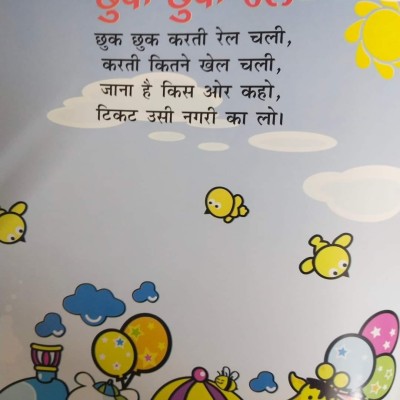 छुक छुक रेल
छुक छुक करती रेल चली,
करती कितने खेल चली,
जाना है किस ओर कहो,
टिकट उसी नगरी का लो।